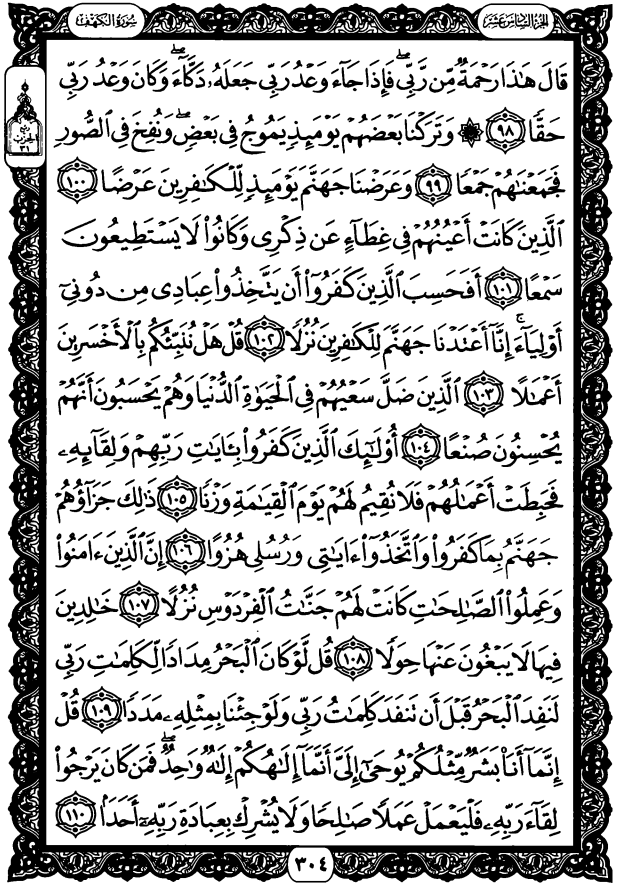 الجزء السادس عشر
سورة الكهف
قَالَ هَٰذَا رَحْمَةٌ مِّن رَّبِّي ۖ فَإِذَا جَآءَ وَعْدُ رَبِّي جَعَلَهُۥ دَكَّآءَ ۖ وَكَانَ وَعْدُ رَبِّي
حَقًّا ﴿٩٨﴾ ۞ وَتَرَكْنَا بَعْضَهُمْ يَوْمَئِذٍ يَمُوجُ فِي بَعْضٍ ۖ وَنُفِخَ فِي الصُّورِ
فَجَمَعْنَٰهُمْ جَمْعًا ﴿٩٩﴾ وَعَرَضْنَا جَهَنَّمَ يَوْمَئِذٍ لِّلْكَٰفِرِينَ عَرْضًا ﴿١٠٠﴾
الَّذِينَ كَانَتْ أَعْيُنُهُمْ فِي غِطَآءٍ عَن ذِكْرِي وَكَانُوا۟ لَا يَسْتَطِيعُونَ
سَمْعًا ﴿١٠١﴾ أَفَحَسِبَ الَّذِينَ كَفَرُوٓا۟ أَن يَتَّخِذُوا۟ عِبَادِي مِن دُونِيٓ
أَوْلِيَآءَ ۚ إِنَّآ أَعْتَدْنَا جَهَنَّمَ لِلْكَٰفِرِينَ نُزُلًا ﴿١٠٢﴾ قُلْ هَلْ نُنَبِّئُكُم بِالْأَخْسَرِينَ
أَعْمَٰلًا ﴿١٠٣﴾ الَّذِينَ ضَلَّ سَعْيُهُمْ فِي الْحَيَوٰةِ الدُّنْيَا وَهُمْ يَحْسَبُونَ أَنَّهُمْ
يُحْسِنُونَ صُنْعًا ﴿١٠٤﴾ أُو۟لَٰٓئِكَ الَّذِينَ كَفَرُوا۟ بِـَٔايَٰتِ رَبِّهِمْ وَلِقَآئِهِۦ
فَحَبِطَتْ أَعْمَٰلُهُمْ فَلَا نُقِيمُ لَهُمْ يَوْمَ الْقِيَٰمَةِ وَزْنًا ﴿١٠٥﴾ ذَٰلِكَ جَزَآؤُهُمْ
جَهَنَّمُ بِمَا كَفَرُوا۟ وَاتَّخَذُوٓا۟ ءَايَٰتِي وَرُسُلِي هُزُوًا ﴿١٠٦﴾ إِنَّ الَّذِينَ ءَامَنُوا۟
وَعَمِلُوا۟ الصَّٰلِحَٰتِ كَانَتْ لَهُمْ جَنَّٰتُ الْفِرْدَوْسِ نُزُلًا ﴿١٠٧﴾ خَٰلِدِينَ
فِيهَا لَا يَبْغُونَ عَنْهَا حِوَلًا ﴿١٠٨﴾ قُل لَّوْ كَانَ الْبَحْرُ مِدَادًا لِّكَلِمَٰتِ رَبِّي
لَنَفِدَ الْبَحْرُ قَبْلَ أَن تَنفَدَ كَلِمَٰتُ رَبِّي وَلَوْ جِئْنَا بِمِثْلِهِۦ مَدَدًا ﴿١٠٩﴾ قُلْ
إِنَّمَآ أَنَا۠ بَشَرٌ مِّثْلُكُمْ يُوحَىٰٓ إِلَيَّ أَنَّمَآ إِلَٰهُكُمْ إِلَٰهٌ وَٰحِدٌ ۖ فَمَن كَانَ يَرْجُوا۟
لِقَآءَ رَبِّهِۦ فَلْيَعْمَلْ عَمَلًا صَٰلِحًا وَلَا يُشْرِكْ بِعِبَادَةِ رَبِّهِۦٓ أَحَدًۢا ﴿١١٠﴾
٣٠٤